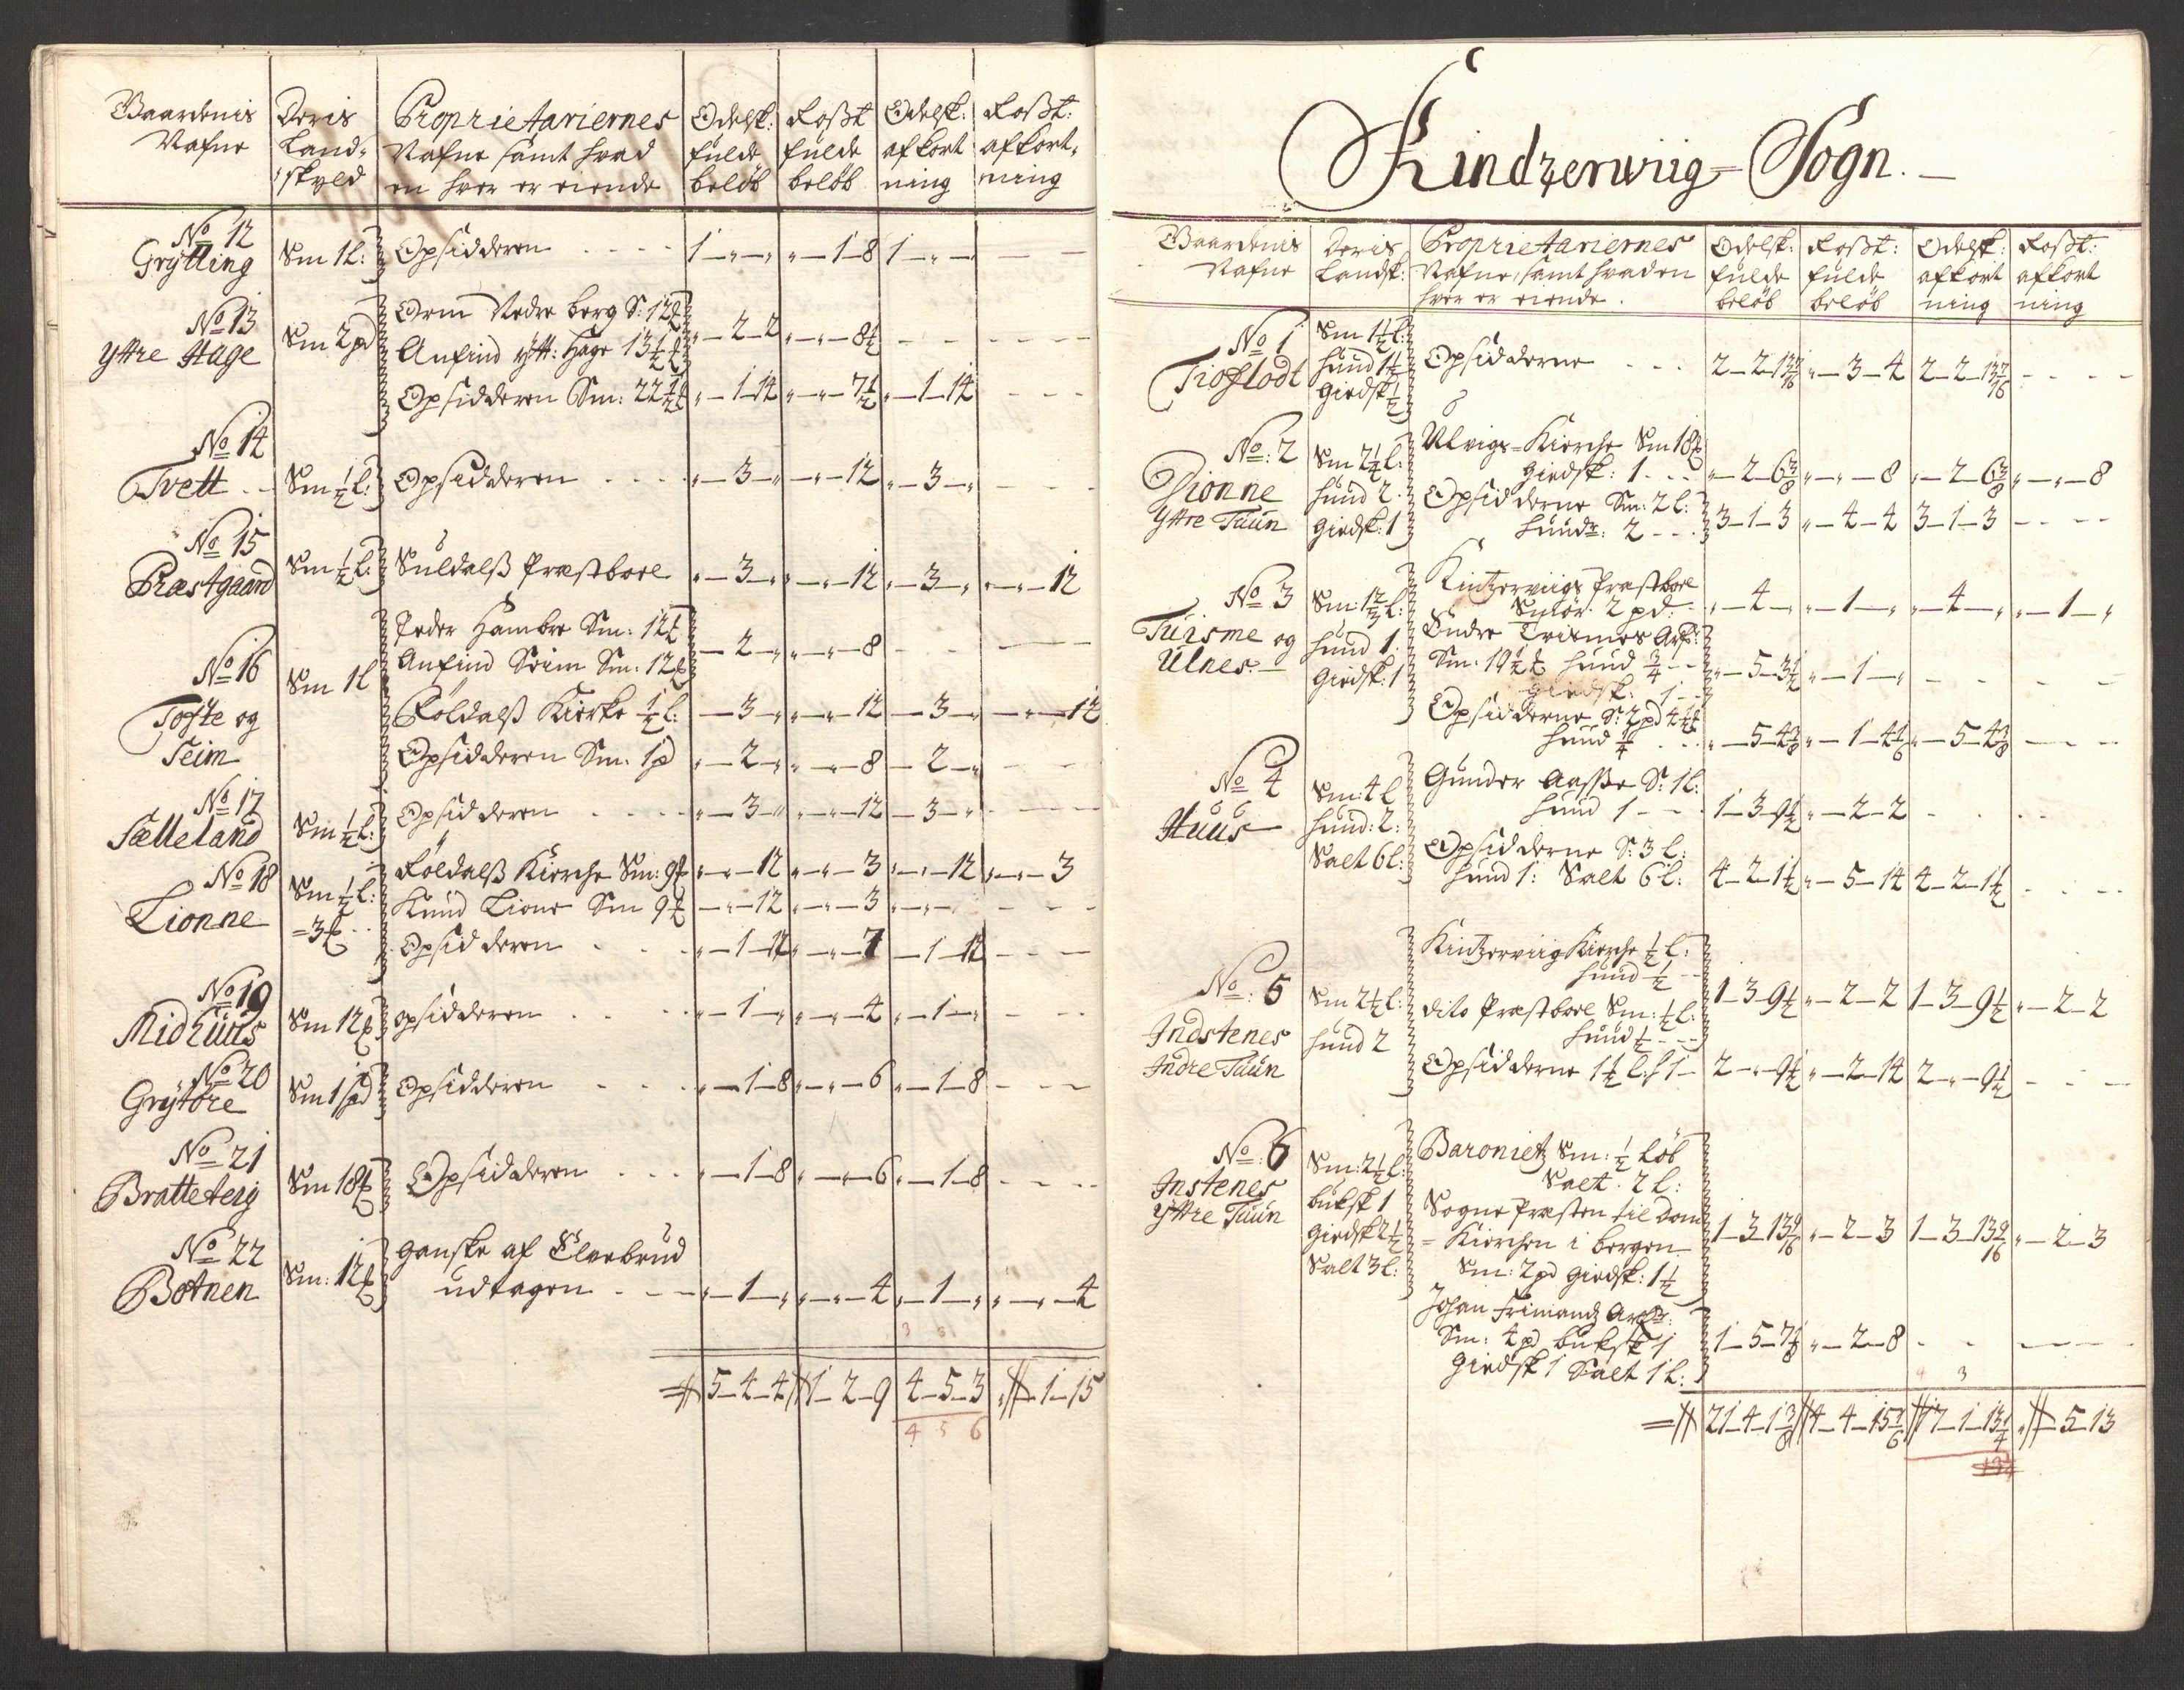 Gaardenis Nafne | Deris Land- skyld | Proprietariernes Nafne samt hvad en hver er eiende | Odelsk: fulde beløb | Roßt fulde beløb | Odelsk: afkort ning | Roßt: afkort- ning
No 12 Grÿtting | Sm 1 l: | Opsidderen | 1 - „ - „ | „ - 1 - 8 | 1 - „ -
No 13 Yttre Hage | Sm 2 pd | Orm Nedre berg S: 12 ℔
Anfind ytt: Hage 13½ ℔ | „ - 2 - 2 | „ - „ - 8½
Opsidderen Sm: 22½ ℔ | „ - 1 - 14 | „ - „ - 7½ | „ - 1 - 14
No 14 Tvett | Sm ½ l: | Opsidderen | „ - 3 - „ | „ - „ - 12 | „ - 3 - „
No 15 Præstgaard | Sm ½ l: | Suldalß Præstboel | „ - 3 - „ | „ - „ - 12 | „ - 3 - „ | „ - „ - 12
No 16 Tofte og Seim | Sm 1 l | Peder Hambre Sm: 12 ℔
Anfind Seim Sm: 12 ℔ | - 2 - „ | „ - „ - 8
Röldalß Kierke ½ l: | - 3 - „ | „ - „ - 12 | - 3 - „ | „ - „ - 12
Opsidderen Sm: 1 pd | „ - 2 - „ | „ - „ - 8 | - 2 - „
No 17 Sælleland | Sm ½ l: | Opsidderen | „ - 3 - „ | „ - „ - 12 | - 3 - „
No 18 Lionne | Sm ½ l: = 3 ℔ | Röldalß Kierche Sm: 9 ℔ | „ - „ - 12 | „ - „ - 3 | „ - „ - 12 | „ - „ - 3
Knud Lione Sm 9 ℔ | - „ - 12 | „ - „ - 3 | „ - „ -
Opsidderen | „ - 1 - 12 | „ - „ - 7 | - 1 - 12
No 19 Midhuus | Sm 12 ℔ | opsidderen | „ - 1 - „ | „ - „ - 4 | „ - 1 - „
No 20 Grÿtöre | Sm 1 pd | Opsidderen | „ - 1 - 8 | „ - „ - 6 | „ - 1 - 8
No 21 Bratteteig | Sm 18 ℔ | Opsidderen | „ - 1 - 8 | „ - „ - 6 | „ - 1 - 8
No 22 Botnen | Sm: 12 ℔ | ganske af Elvebrud
udtagen | „ - 1 - „ | „ - „ - 4 | „ - 1 - „ | „ - „ - 4
5 - 4 - 4 | 1 - 2 - 9 | 4 - 5 - 3 | „ - 1 - 15
4 5 6
Kindzerwiig - Sogn.
Gaardenis Nafne | Deris Landsk: | Proprietariernes Nafne, samt hvad en hver er eiende. | Odelsk: fulde beløb | Roßt: fulde beløb | Odelsk: afkort ning | Roßt: afkort ning
No 1 Tioflodt | Sm 1½ l: hund 1½ Giedsk ½ | Opsidderne | 2 - 2 - 13 7/16 | „ - 3 - 4 | 2 - 2 - 13 7/16
No: 2 Dionne Yttre Tuun | Sm 2¼ l: hund 2 Giedsk: 1 | Ulvigs - Kierche Sm 18 ℔
Giedsk: 1 | „ - 2 - 6 3/8 | „ - „ - 8 | „ - 2 - 6 3/8 | „ - „ - 8
Opsidderne Sm: 2 l:
hund: 2 | 3 - 1 - 3 | „ - 4 - 4 | 3 - 1 - 3
No 3 Tuisme og Ulnes | Sm: 1⅔ l: hund 1 Giedsk: 1 | Kintzerviigs Præstboel
Smör: 2 pd: | „ - 4 - „ | „ - 1 - „ | „ - 4 - „ | „ - 1 - „
Endre Trismes Arf:
Sm: 19½ ℔ hund ¾
Giedsk: 1 | „ - 5 - 3½ | „ - 1 - „
Opsidderne S: 2 pd 4½ ℔
hund ¼ | „ - 5 - 4 3/8 | „ - 1 - 4 1/6 | „ - 5 - 4 3/8
No 4 Huus | Sm: 4 l hund: 2: Salt 6 l: | Gunder Aaße S: 1 l:
hund 1 | 1 - 3 - 9½ | „ - 2 - 2
Opsidderne S: 3 l:
hund 1: Salt 6 l: | 4 - 2 - 1½ | „ - 5 - 14 | 4 - 2 - 1½
No: 5 Indstenes Indre Tuun | Sm 2½ l: hund 2 | Kintzerviig Kierche ½ l:
hund ½
dito Præstboel Sm: ½ l:
hund ½ | 1 - 3 - 9½ | „ - 2 - 2 | 1 - 3 - 9½ | „ - 2 - 2
Opsidderne 1½ l: h 1 | 2 - „ - 9½ | „ - 2 - 14 | 2 - „ - 9½
No: 6 Instenes Yttre Tuun | Sm: 2½ l: buksk 1 Giedsk 2½ Salt 3 l: | Baroniet Sm: ½ Löb
Salt: 2 l:
Sogne Præsten til Dom
= Kierchen i bergen
Sm: 2 pd Giedsk: 1½ | 1 - 3 - 13 9/16 | „ - 2 - 3 | 1 - 3 - 13 9/16 | „ - 2 - 3
Johan Frimandz Arf:
Sm: 4 pd buksk 1
Giedsk 1 Salt 1 l: | 1 - 5 - 7 1/8 | „ - 2 - 8
21 - 4 - 1 3/8 | 4 - 4 - 15 1/6 | 17 - 1 - 13 1/4 | „ - 5 - 13